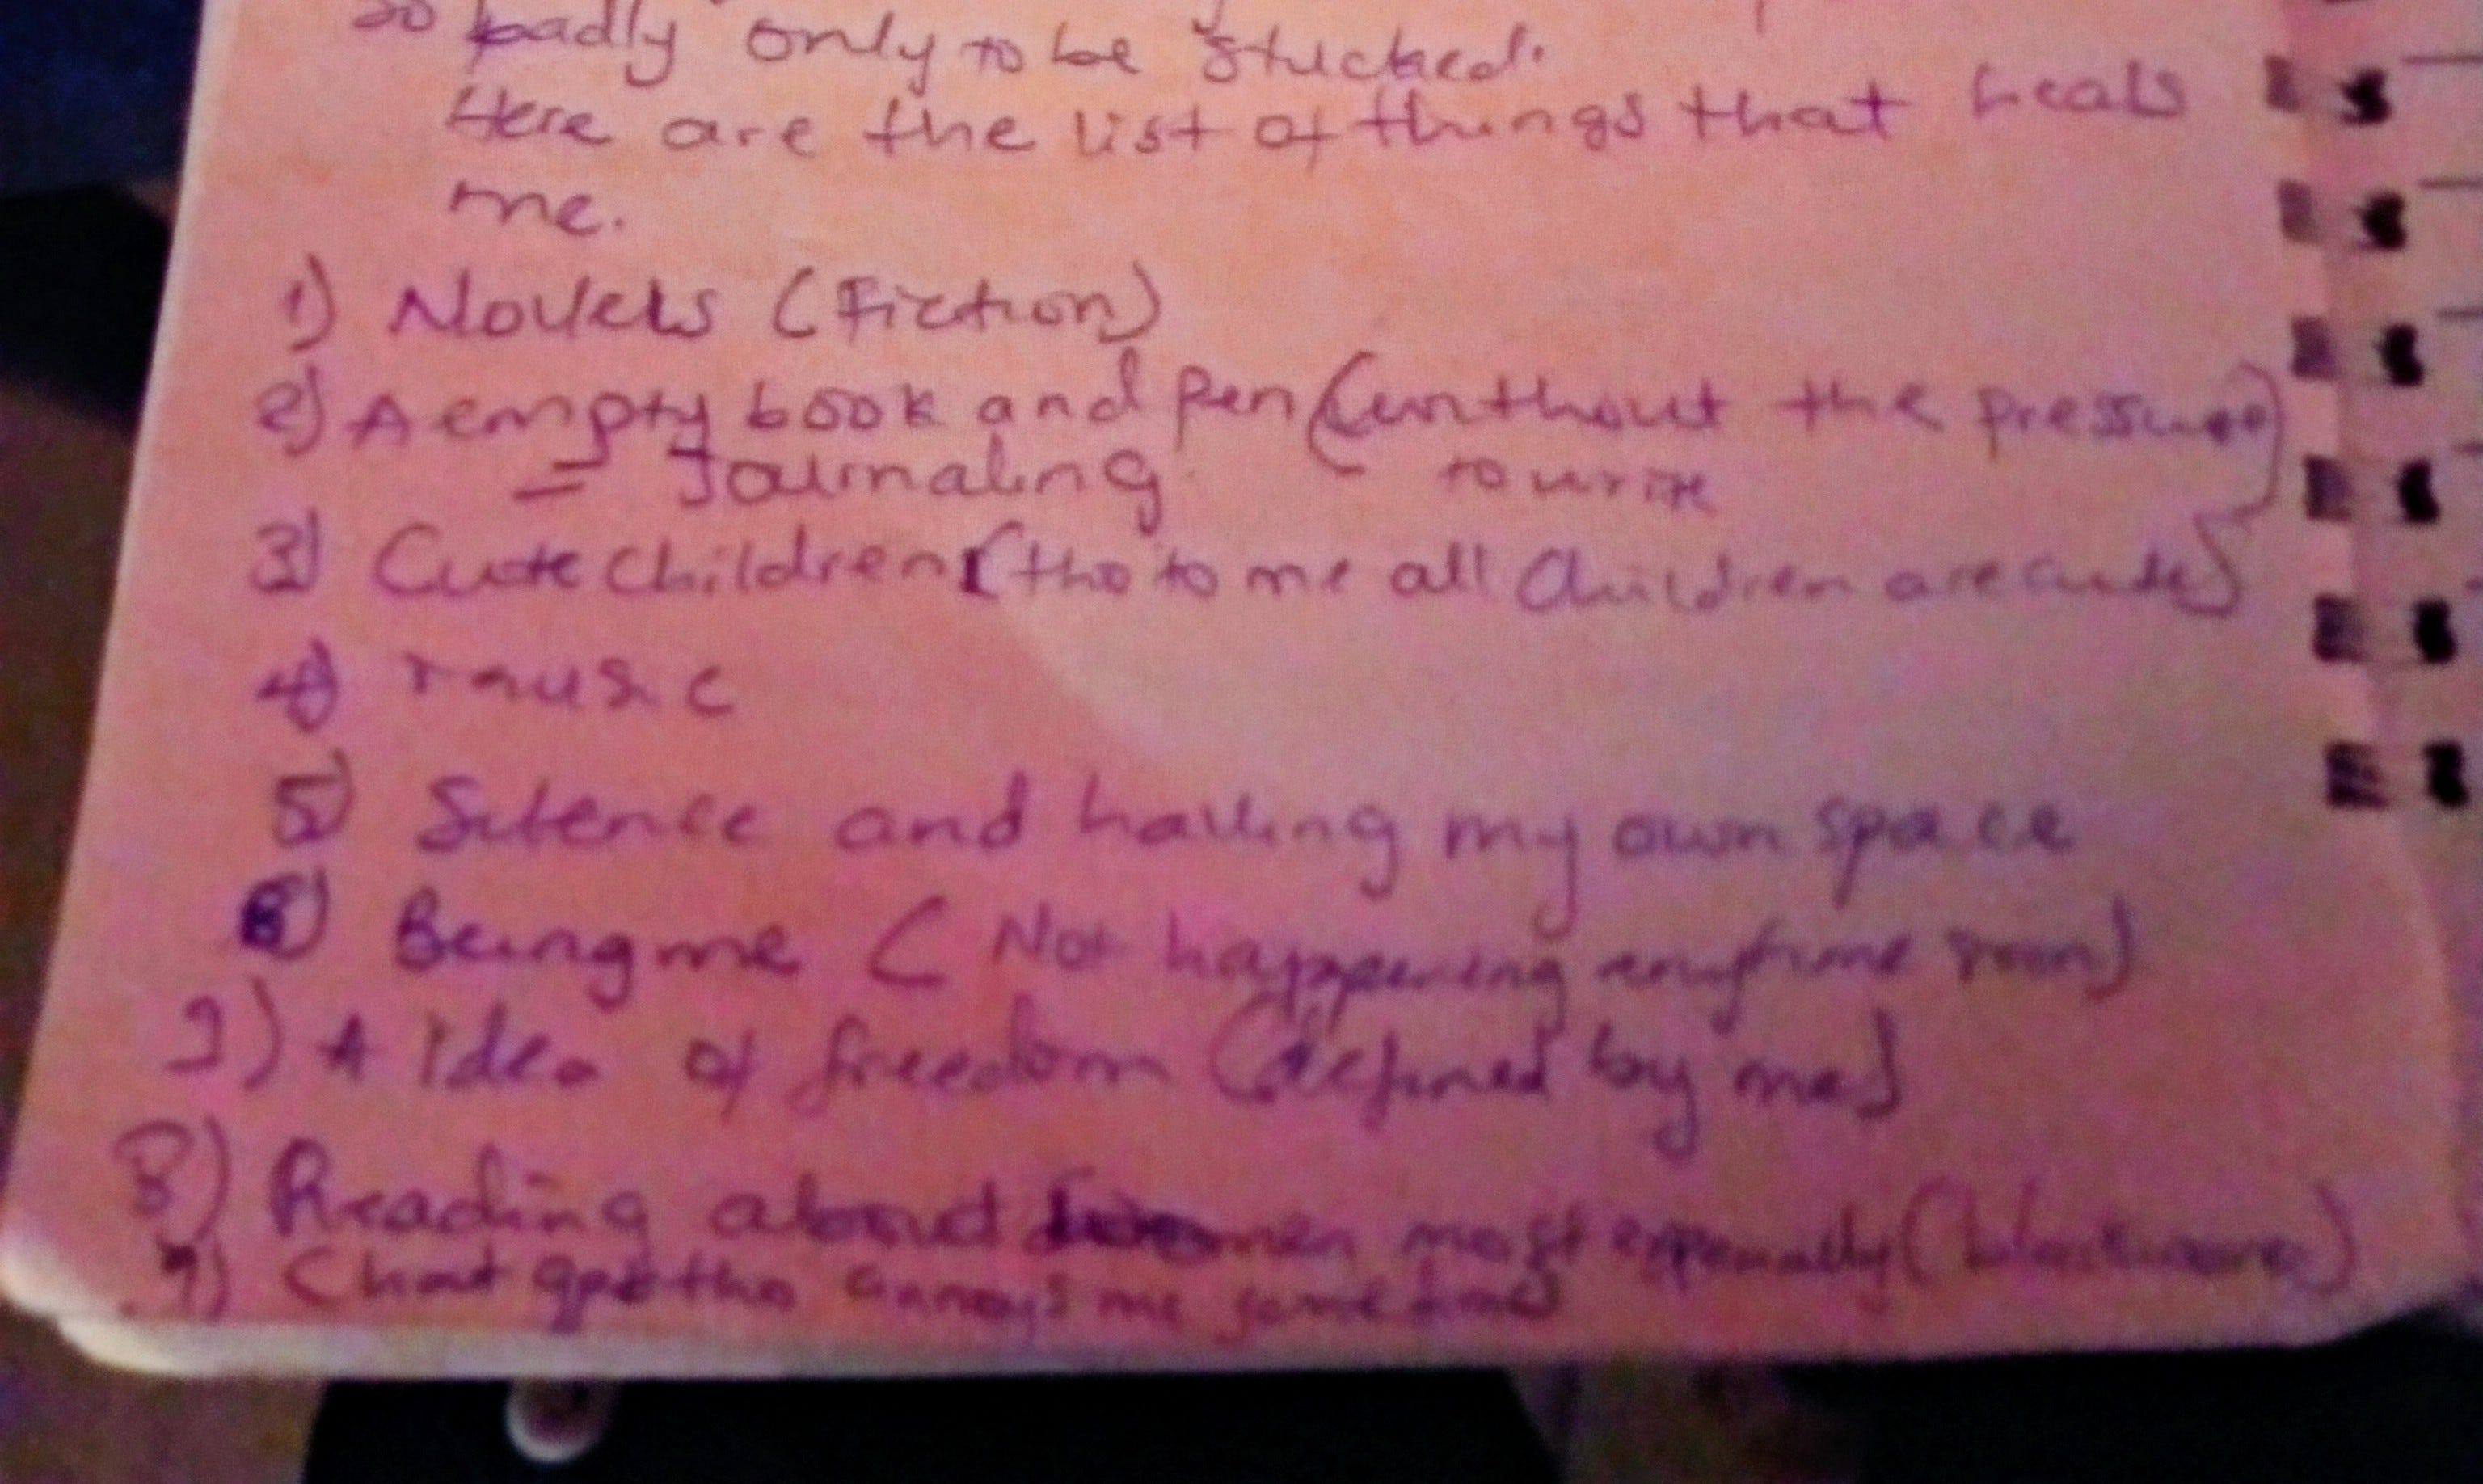 so badly only to be stucked.
Here are the list of things that heals
me.
1) Novels (Fiction)
2) A empty book and pen (without the pressure)
= Journaling to write
3) Cute children (tho to me all Children are cute)
4) music
5) Silence and having my own space
6) Being me (Not happening anytime soon)
7) A idea of freedom (defined by me)
8) Reading about women most especially (
9) Chat gpt tho annoys me sometimes